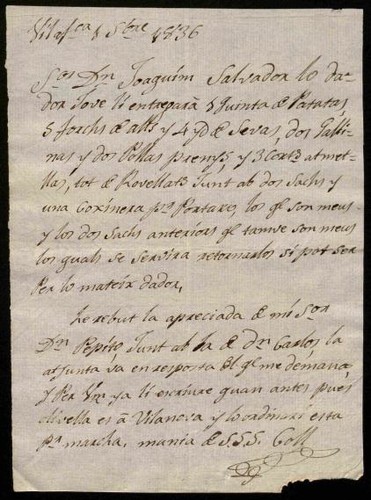 Vilafca 1 Sbre 1836
Sor Dn Joaquim Salvador lo da-
dor Jove li entregarà 1 Quinta de Patatas
5 forchs de alls y 4 yd de Sevas, dos Galli-
nas y dos Pollas prenys, y 3 Corts atmet-
llas, tot de Rovellats Junt ab dos Sachs y
una Coxinera pa Portareo, los ql son meus
y los dos Sachs anteriors ql tamve son meus
los quals se servira retornarlos si pot ser
Per lo mateix dador,
he rebut la apreciada de mi Sor
Dn Pepito, Junt ab la de dn Carlos la
adjunta va en resposta del ql me demana,
y Per Vm ya li escriure quan antes pues
Olivella es à Vilanova y lo ordinari esta
pa marcha, mania de S.S.S. Coll